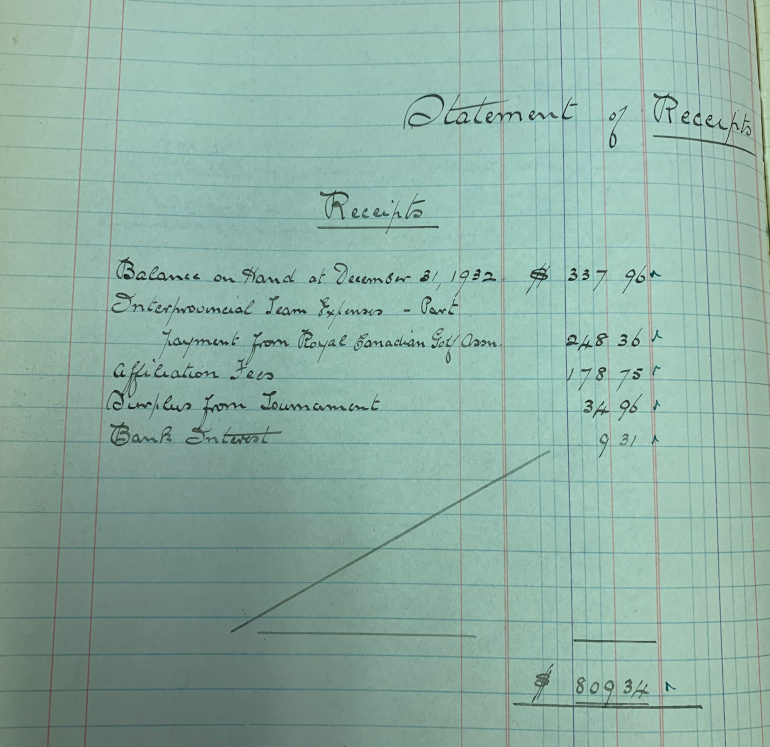 Statement of Receipts
Receipts
Balance on Hand at December 31, 1932 $ 337 96
Interprovincial Team Expenses - Part
payment from Royal Canadian Golf Assn. 248 36
Affiliation Fees 178 75
Surplus from Tournament 34 96
Bank Interest 9 31
$ 809 34